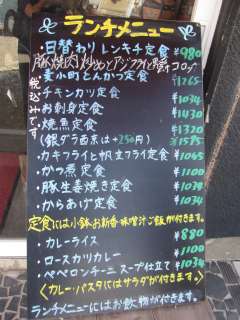 ランチメニュー
・日替わりレンキチ定食 ¥980
豚焼肉炒めとアジフライと
・麦小町とんかつ定食 ¥1265
・チキンカツ定食 ¥1034
・お刺身定食 ¥1430
・焼魚定食 ¥1320
(銀ダラ西京は+250円) ¥1585
・カキフライと帆立フライ定食 ¥1065
・かつ煮定食 ¥1100
・豚生姜焼き定食 ¥1034
・からあげ定食 ¥1034
定食には小鉢お新香味噌汁ご飯が付きます。
・カレーライス ¥880
・ロースカツカレー ¥1100
・ペペロンチーニスープ仕立て ¥1034
〈カレー・パスタにはサラダが付きます。〉
ランチメニューにはお飲物が付きます。
税込みです。